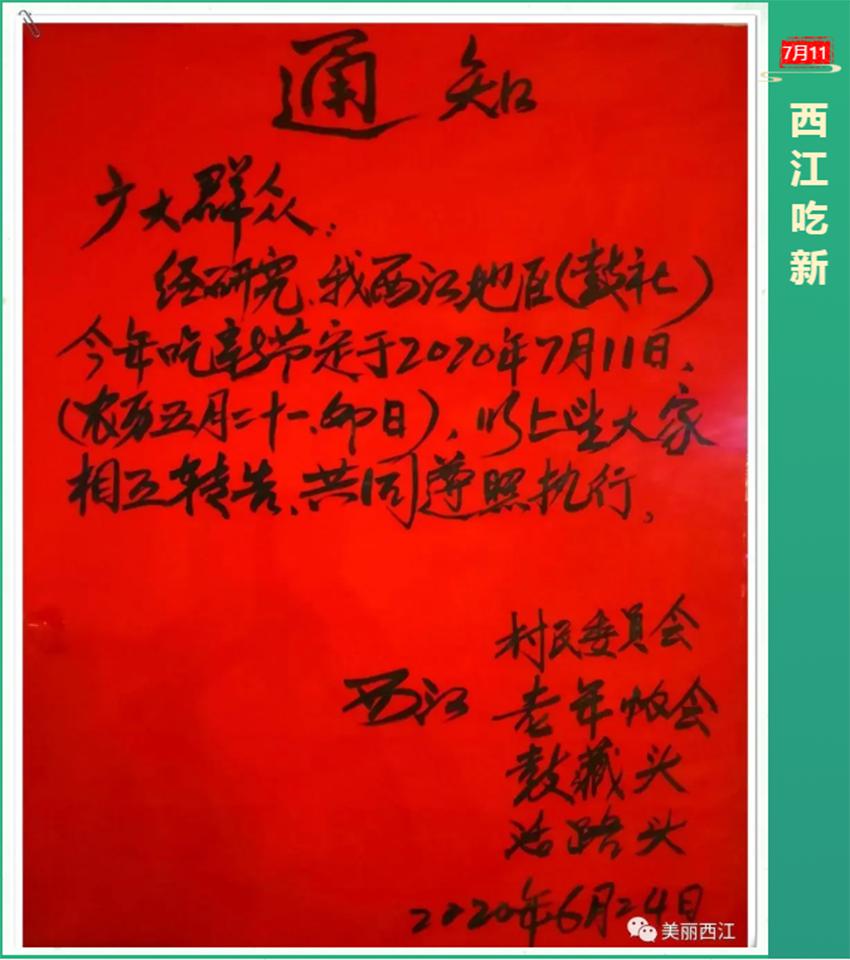 通知
广大群众：
经研究、我西江地区（鼓社）
今年吃新节定于2020年7月11日、
（农历五月二十一、卯日），以上望大家
相互转告、共同遵照执行。
村民委员会
西江 老年协会
鼓藏头
活路头
2020年6月24日
美丽西江
7月11
西江吃新